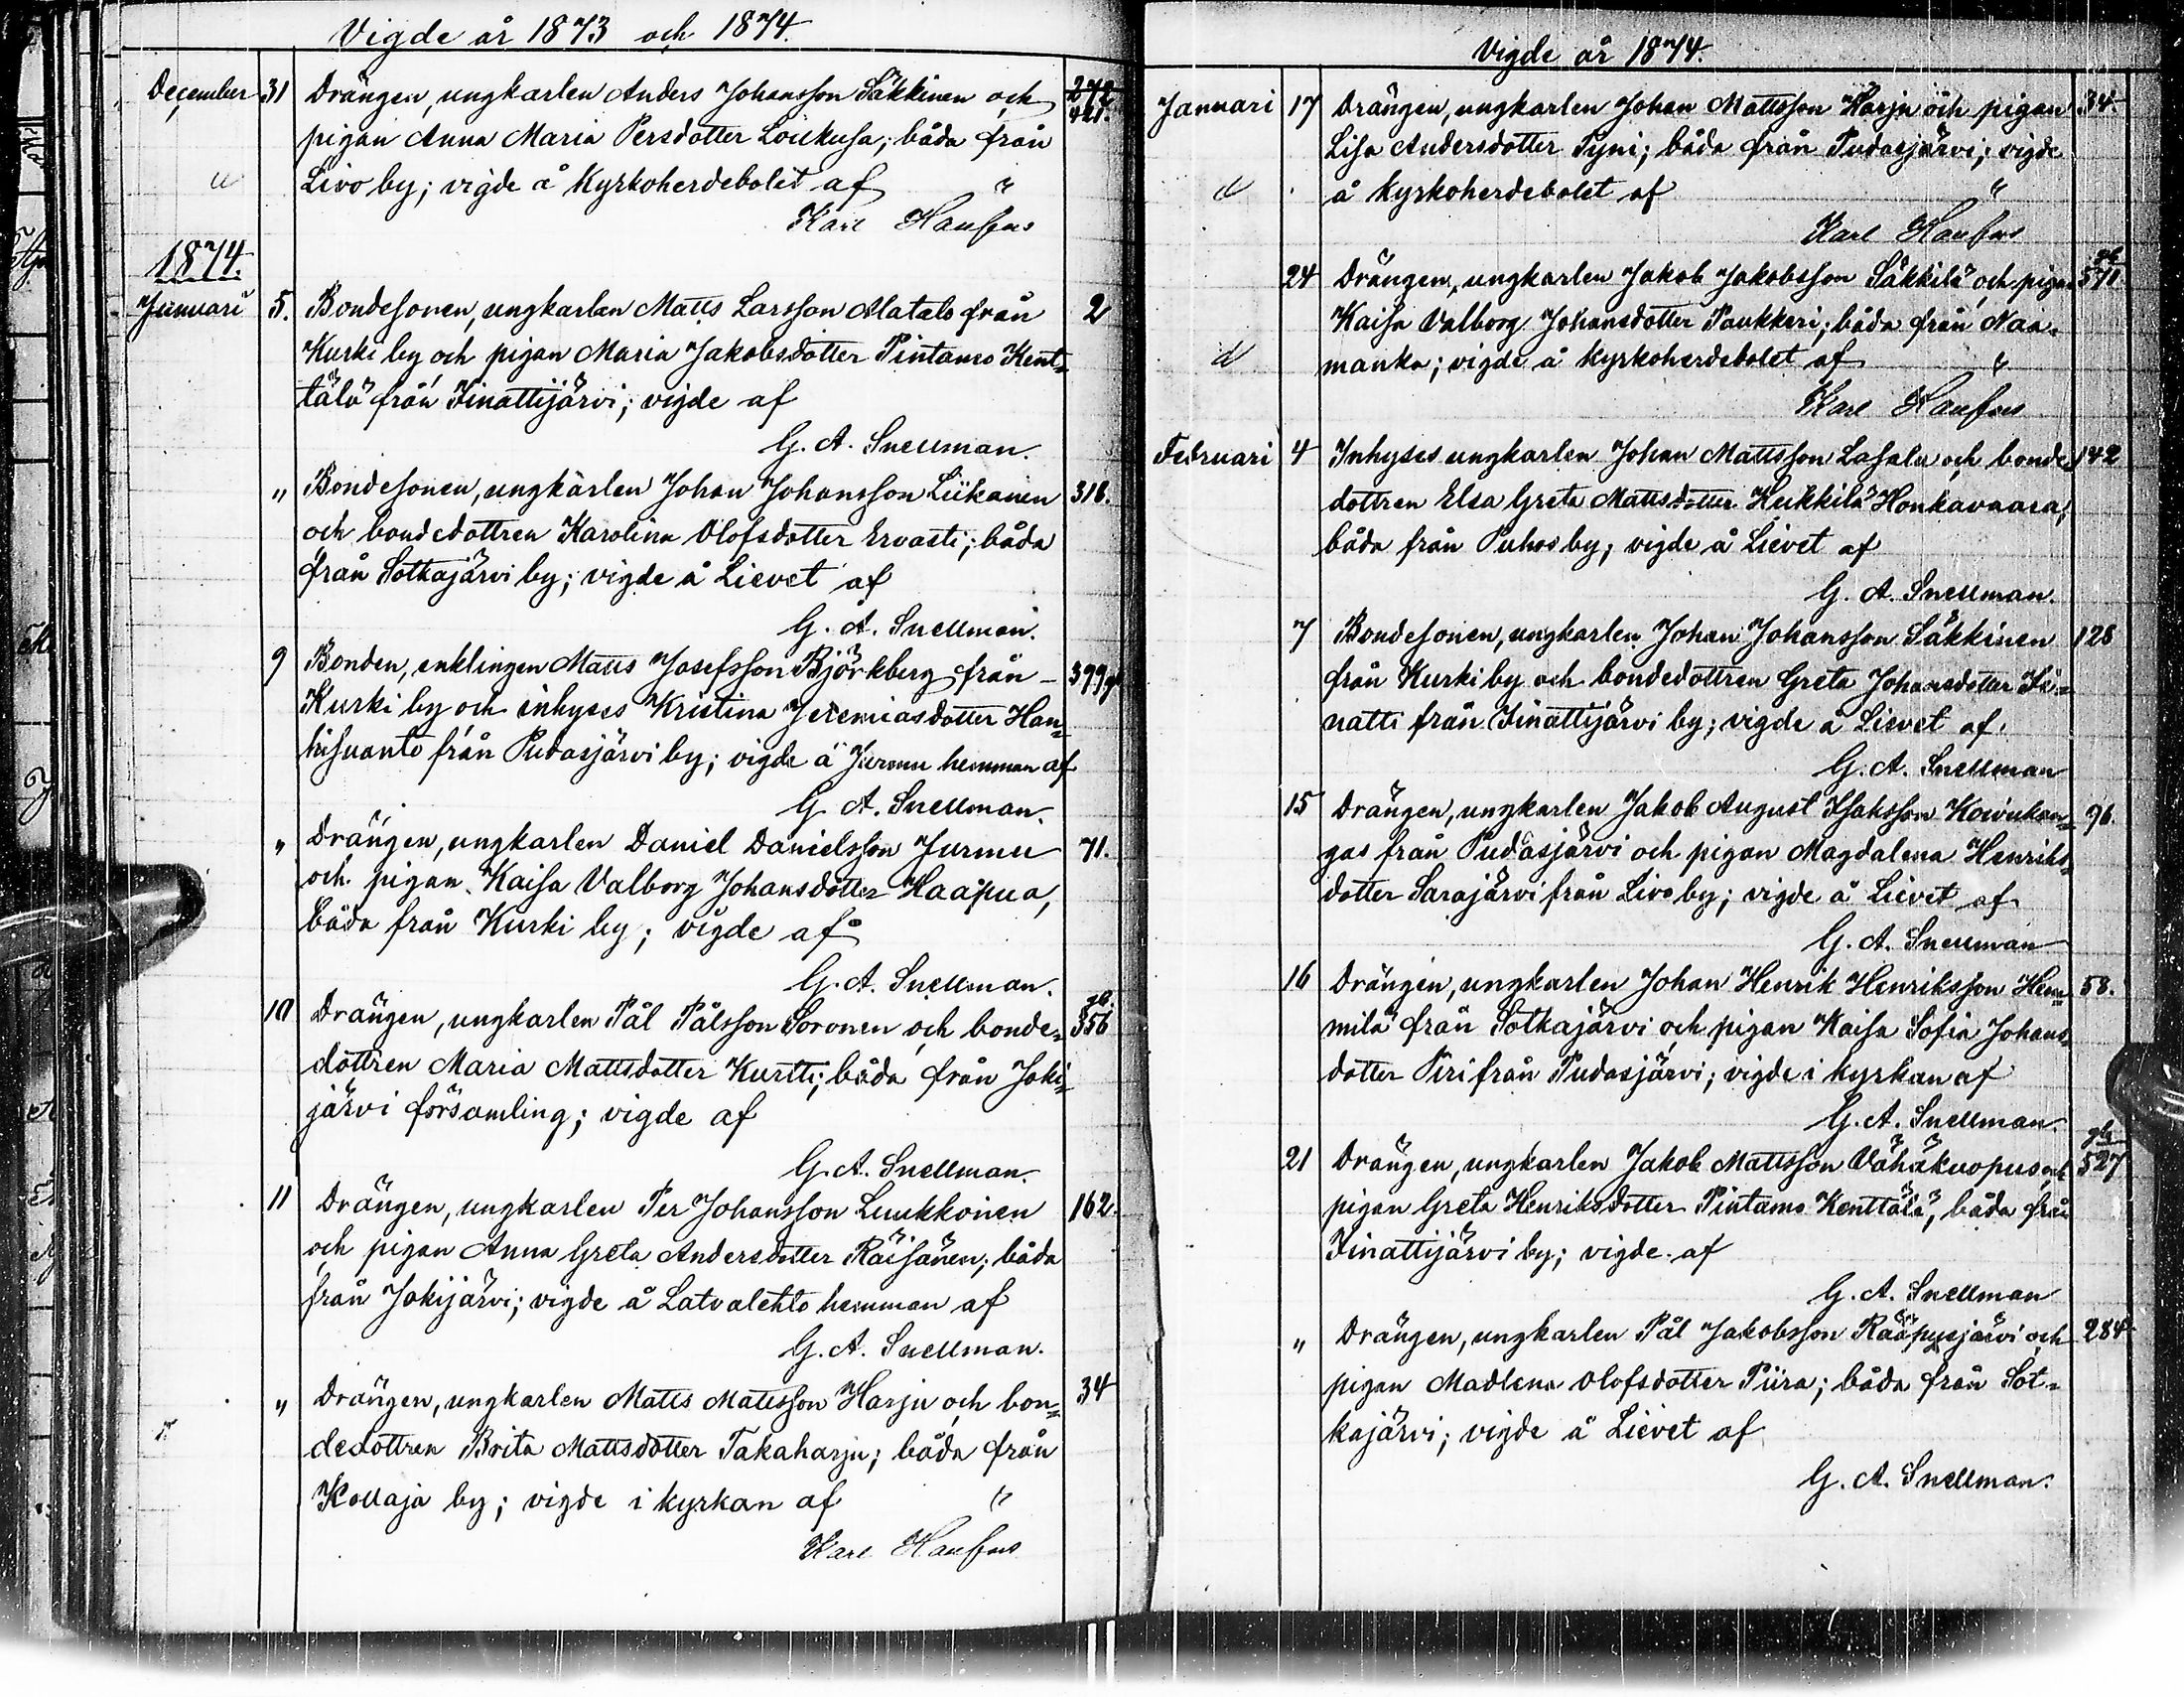 Vigde år 1873 och 1874.
December 31 Drängen, ungkarlen Anders Johansson Säkkinen och
pigan Anna Maria Persdotter Loukusa; båda från
Livo by; vigde å Kyrkoherdebolet af
Karl
1874.
Januari 5. Bondesonen, ungkarlen Matts Larsson Alatalo från 2
Kurki by och pigan Maria Jakobsdotter Pintamo Kent=
tälä från Iinattijärvi; vigde af
G. A. Snellman.
" Bondesonen, ungkarlen Johan Johansson Liikanen 318.
och bondedottren Karolina Olofsdotter Ervasti; båda
från Sotkajärvi by; vigde å Lievet af
G. A. Snellman.
9 Bonden, enklingen Matts Josefsson Björkberg från 399
Kurki by och inhyses Kristina Jeremiasdotter Han=
hisuanto från Pudasjärvi by; vigde å Jurmu hemman af
G. A. Snellman.
" Drängen, ungkarlen Daniel Danielsson Jurmu 71.
och pigan Kaisa Valborg Johansdotter Haapua,
båda från Kurki by; vigde af
G. A. Snellman.
10 Drängen, ungkarlen Pål Pålsson Soronen och bonde= 356
dottren Maria Mattsdotter Kurtti; båda från Joki=
järvi församling; vigde af
G. A. Snellman.
11 Drängen, ungkarlen Per Johansson Luukkoinen 162.
och pigan Anna Greta Andersdotter Räisänen; båda
från Jokijärvi; vigde å Latvalehto hemman af
G. A. Snellman.
" Drängen, ungkarlen Matts Mattsson Harju och bon= 34
dedottren Brita Mattsdotter Takaharju; båda från
Kollaja by; vigde i kyrkan af "
Karl
Vigde år 1874.
Januari 17 Drängen, ungkarlen Johan Mattsson Harju och pigan 34.
Lisa Andersdotter Tyni; båda från Pudasjärvi; vigde
å Kyrkoherdebolet af "
Karl
24 Drängen, ungkarlen Jakob Jakobsson Säkkilä och pigan 571
Kaisa Valborg Johansdotter Paukkeri; båda från Naa=
manka; vigde å kyrkoherdebolet af "
Karl
Februari 4 Inhyses ungkarlen Johan Mattsson Lasala och bonde= 142
dottren Elsa Greta Mattsdotter Heikkilä Honkavaara;
båda från Puhos by; vigde å Lievet af
G. A. Snellman.
7 Bondesonen, ungkarlen Johan Johansson Säkkinen 128
från Kurki by och bondedottren Greta Johansdotter Ii=
natti från Iinattijärvi by; vigde å Lievet af
G. A. Snellman
15 Drängen, ungkarlen Jakob August Isaksson Koivukan= 96.
gas från Pudasjärvi och pigan Magdalena Henriks=
dotter Sarajärvi från Livo by; vigde å Lievet af
G. A. Snellman
16 Drängen, ungkarlen Johan Henrik Henriksson Hem= 58.
milä från Sotkajärvi och pigan Kaisa Sofia Johans=
dotter Piri från Pudasjärvi; vigde i kyrkan af
G. A. Snellman.
21 Drängen, ungkarlen Jakob Mattsson Vähäkuopus och 527
pigan Greta Henriksdotter Pintamo Kenttälä, båda från
Iinattijärvi by; vigde af
G. A. Snellman
" Drängen, ungkarlen Pål Jakobsson Rääpysjärvi och 284
pigan Madlena Olofsdotter Piira; båda från Sot=
kajärvi; vigde å Lievet af
G. A. Snellman.